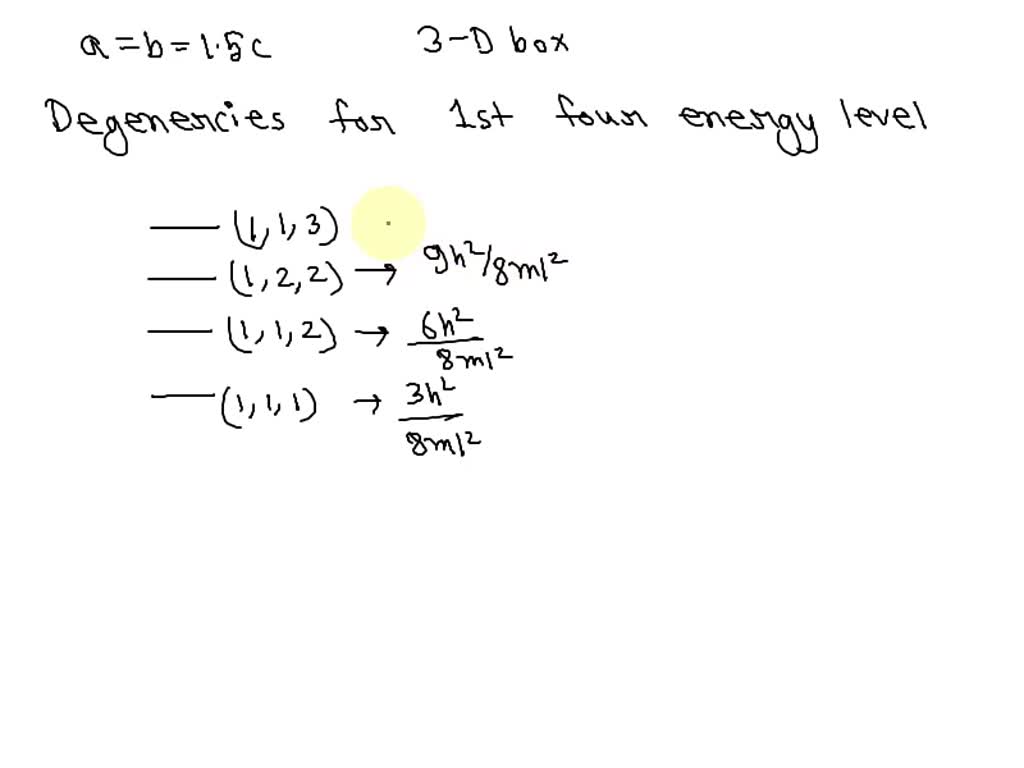 a = b = 1.5c 3-D box
Degenercies for 1st four energy level
(1, 1, 3)
(1, 2, 2) → 9h²/8ml²
(1, 1, 2) → 6h²/8ml²
(1, 1, 1) → 3h²/8ml²